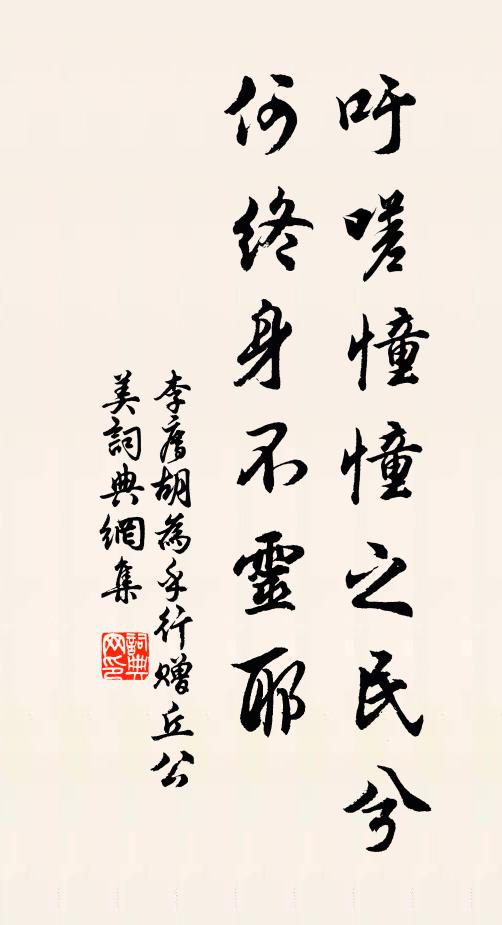 吁嗟憧憧之民兮
何終身不靈耶
李廌胡為乎行贈丘公
美詞典網集
詞典網印